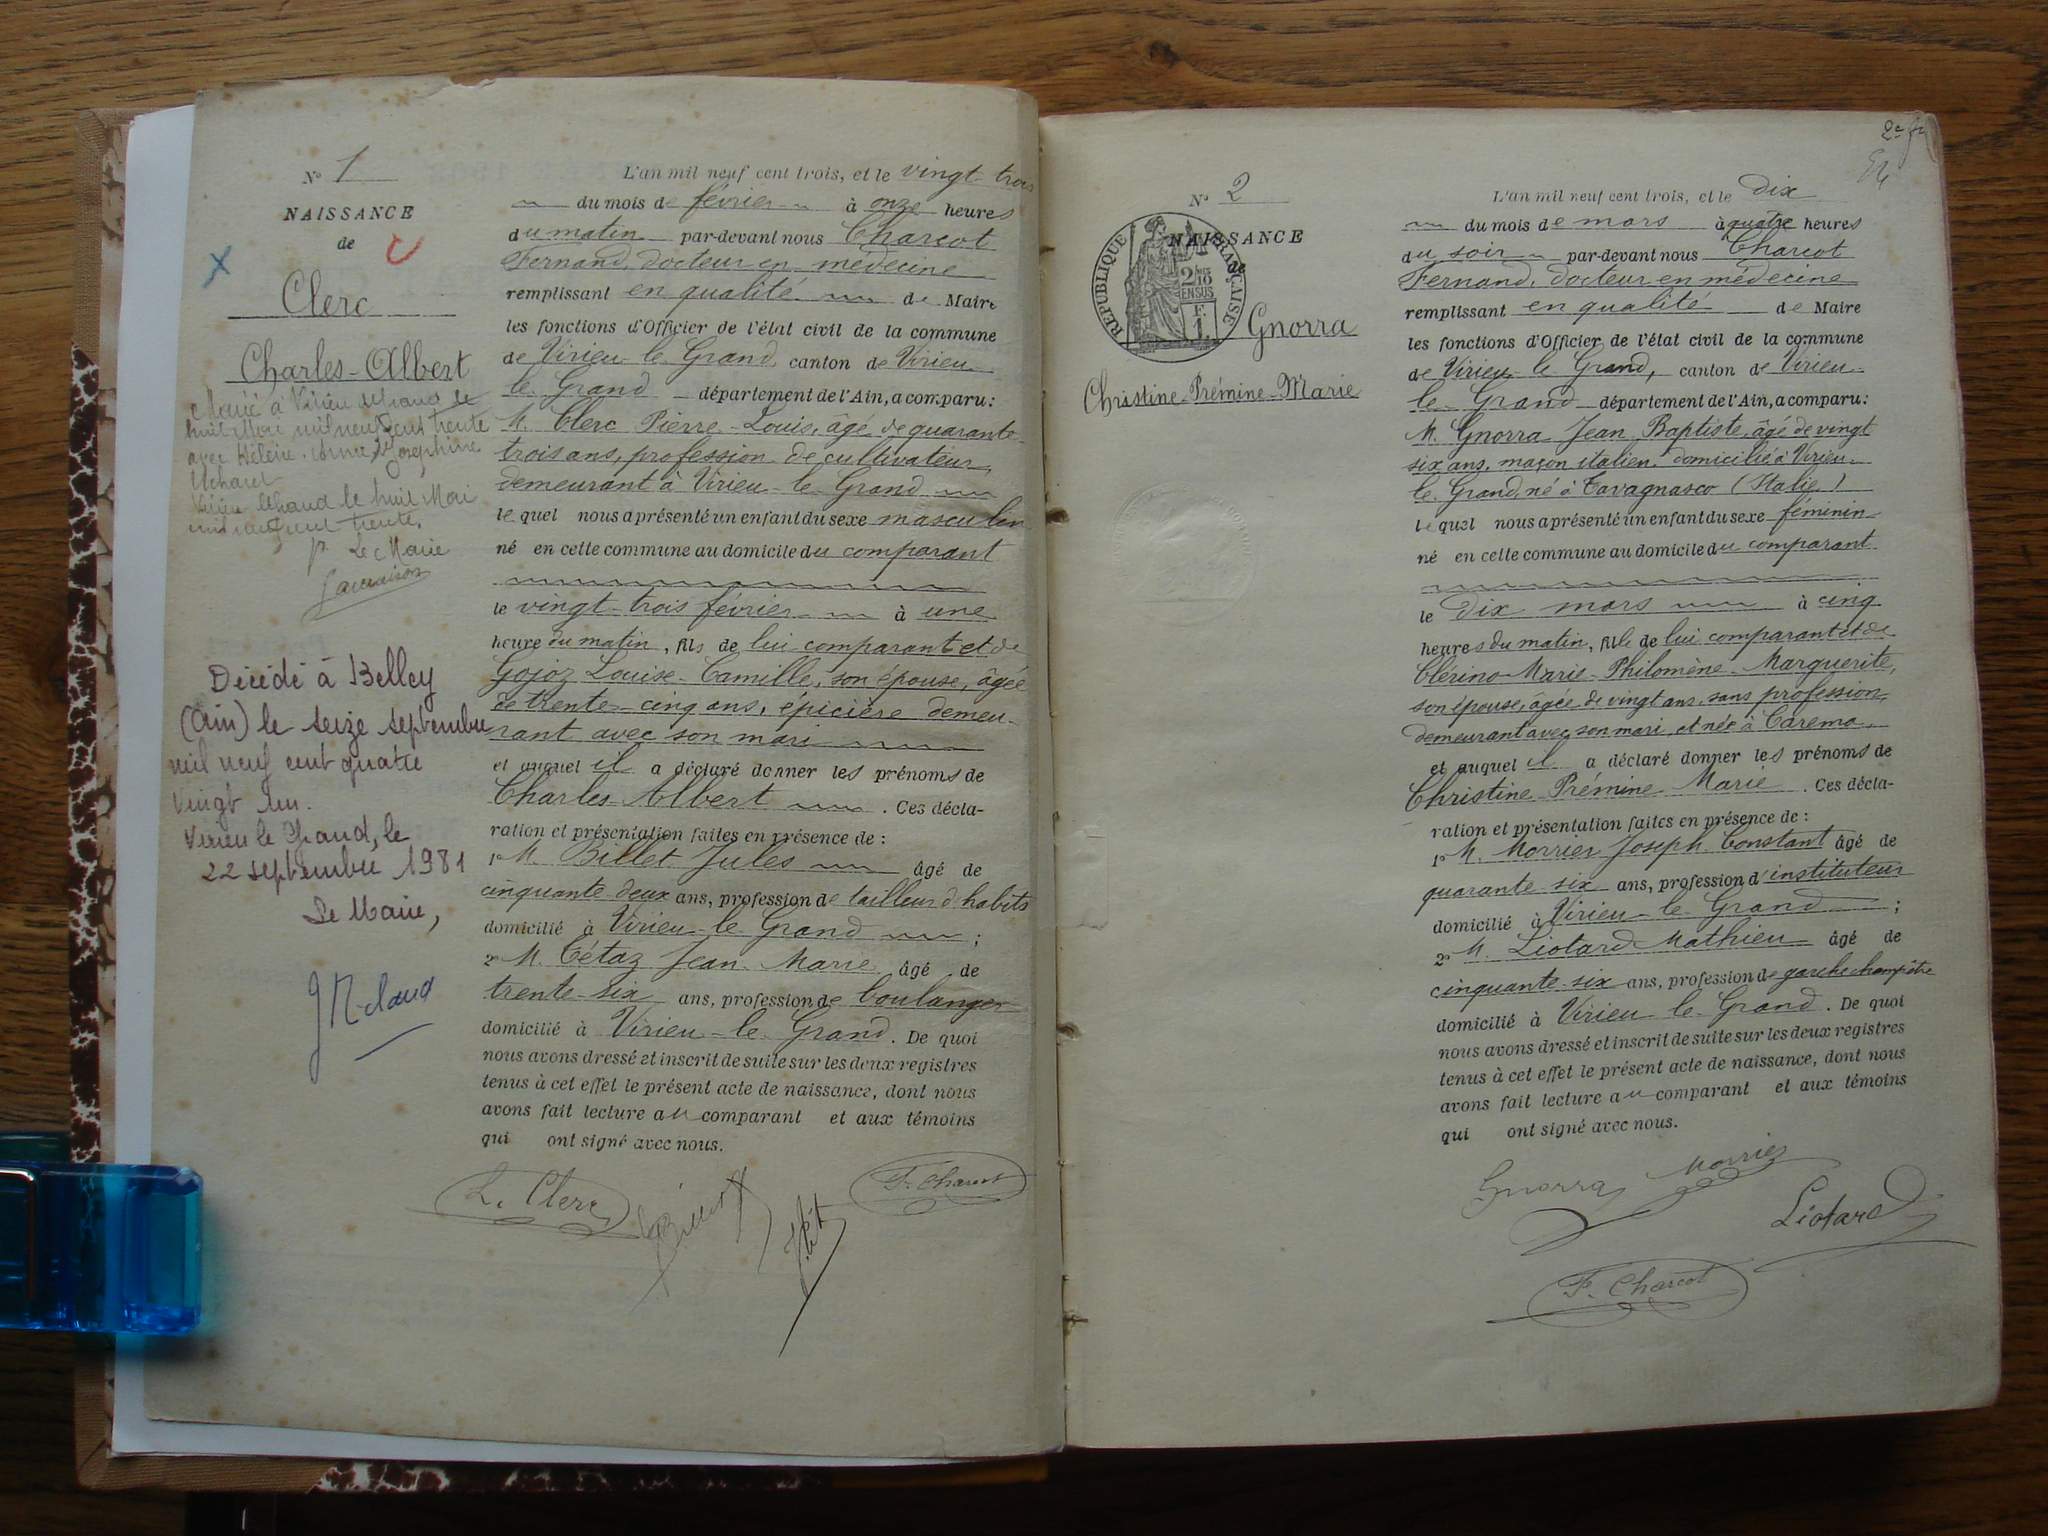 N° 1
NAISSANCE
de
Clerc
Charles-Albert
Marié à Virieu le Grand le
huit Mai mil neuf cent trente
avec Hélène
Virieu le Grand le huit Mai
mil neuf cent trente,
p. Le Maire
Décédé à Belley
(Ain) le seize septembre
mil neuf cent quatre
vingt un.
Virieu le Grand, le
22 septembre 1981
Le Maire,
L'an mil neuf cent trois, et le vingt-trois
du mois de février à onze heures
du matin par-devant nous Charcot
Fernand, docteur en médecine
remplissant en qualité de Maire
les fonctions d'Officier de l'état civil de la commune
de Virieu-le-Grand, canton de Virieu-
le-Grand département de l'Ain, a comparu:
M. Clerc Pierre-Louis, âgé de quarante-
trois ans, profession de cultivateur,
demeurant à Virieu-le-Grand
lequel nous a présenté un enfant du sexe masculin
né en cette commune au domicile du comparant
le vingt-trois février à une
heure du matin, fils de lui comparant et de
Gojoz Louise-Camille, son épouse, âgée
de trente-cinq ans, épicière demeu-
rant avec son mari
et auquel il a déclaré donner les prénoms de
Charles-Albert . Ces décla-
ration et présentation faites en présence de :
1° M. Billet Jules âgé de
cinquante-deux ans, profession de tailleur d'habits
domicilié à Virieu-le-Grand ;
2° M. Tétaz Jean-Marie âgé de
trente-six ans, profession de boulanger
domicilié à Virieu-le-Grand. De quoi
nous avons dressé et inscrit de suite sur les deux registres
tenus à cet effet le présent acte de naissance, dont nous
avons fait lecture au comparant et aux témoins
qui ont signé avec nous.
L. Clerc
F. Charcot
2e
N° 2
NAISSANCE
de
RÉPUBLIQUE FRANÇAISE
2/10 EN SUS
F.
1.
Gnorra
Christine-Prémine-Marie
L'an mil neuf cent trois, et le dix
du mois de mars à quatre heures
du soir par-devant nous Charcot
Fernand, docteur en médecine
remplissant en qualité de Maire
les fonctions d'Officier de l'état civil de la commune
de Virieu-le-Grand, canton de Virieu-
le-Grand département de l'Ain, a comparu:
M. Gnorra Jean-Baptiste, âgé de vingt
six ans, maçon italien, domicilié à Virieu-
le-Grand, né à Tavagnasco (Italie)
lequel nous a présenté un enfant du sexe féminin
né en cette commune au domicile du comparant
le dix mars à cinq
heures du matin, fille de lui comparant et de
Clérino Marie-Philomène-Marguerite,
son épouse, âgée de vingt ans, sans profession,
demeurant avec son mari, et née à Carema.
et auquel il a déclaré donner les prénoms de
Christine-Prémine-Marie . Ces décla-
ration et présentation faites en présence de :
1° M. Morrier Joseph Constant âgé de
quarante-six ans, profession d'instituteur
domicilié à Virieu-le-Grand ;
2° M. Liotard Mathieu âgé de
cinquante-six ans, profession de garde champêtre
domicilié à Virieu-le-Grand. De quoi
nous avons dressé et inscrit de suite sur les deux registres
tenus à cet effet le présent acte de naissance, dont nous
avons fait lecture au comparant et aux témoins
qui ont signé avec nous.
Gnorra Morrier
Liotard
F. Charcot